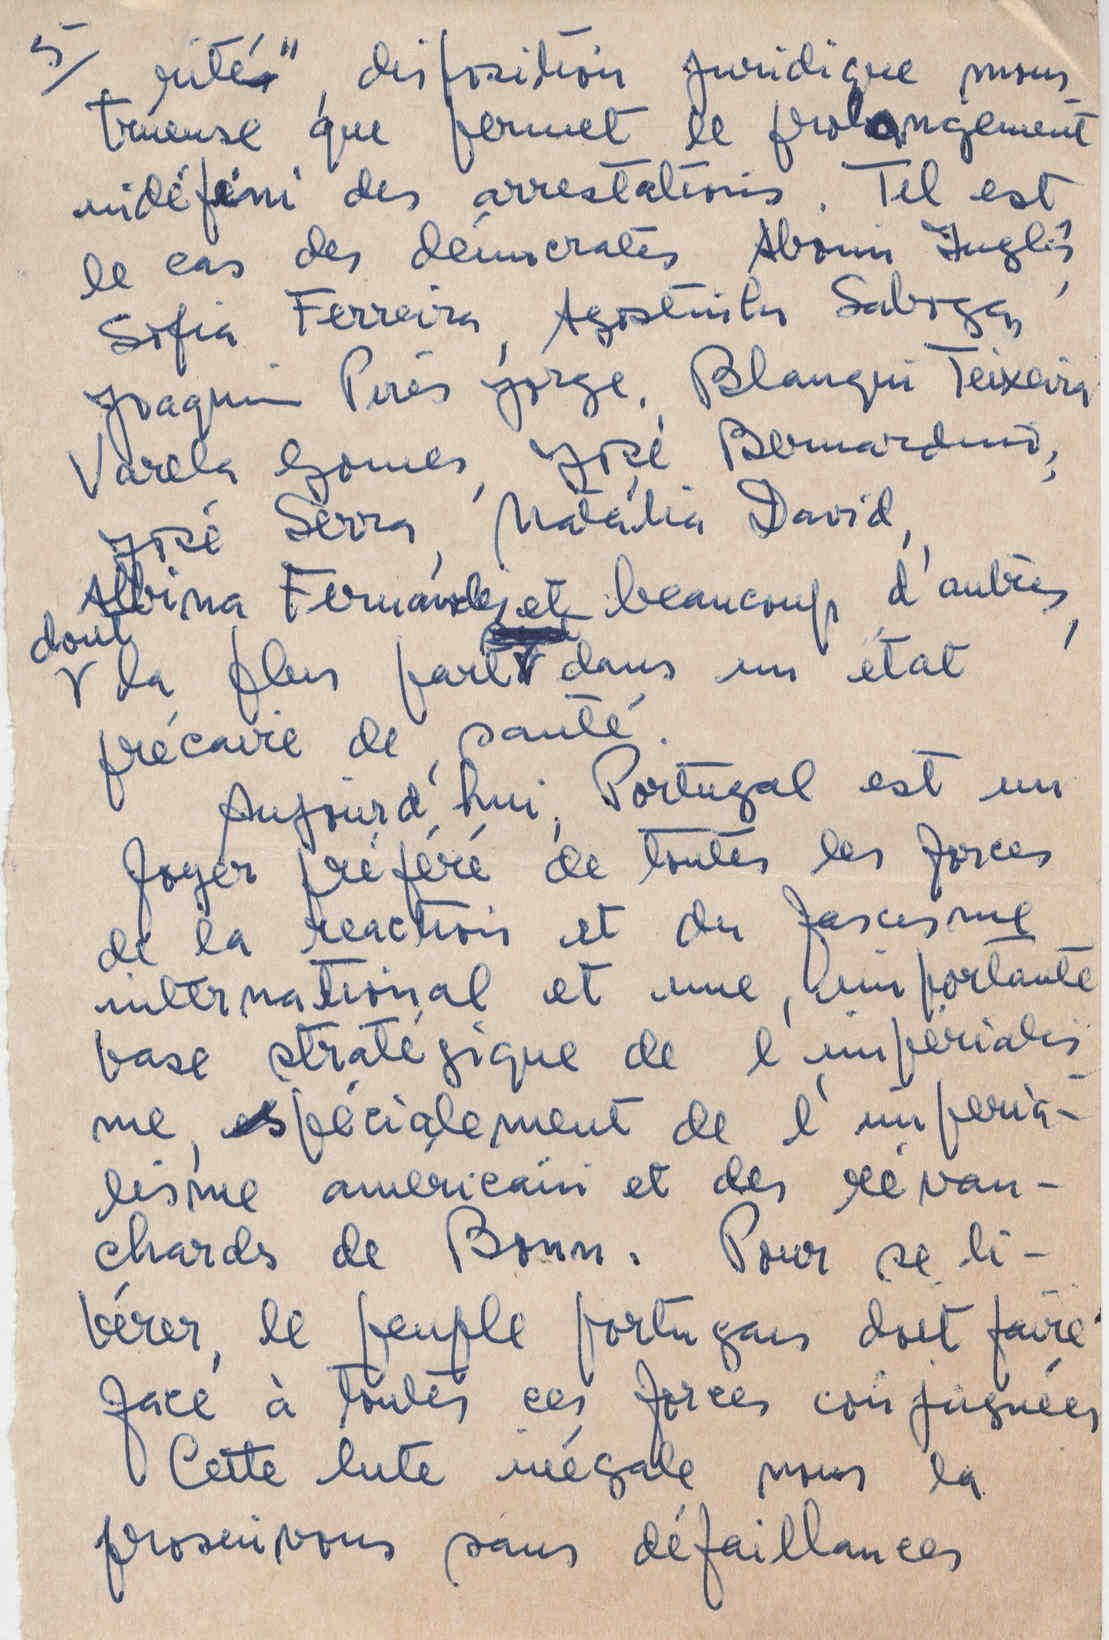 5/ rité", disposition juridique mons
trueuse que permet le prolongement
indéfini des arrestations. Tel est
le cas des démocrates Aboim Inglês,
Sofia Ferreira, Agostinho Saboga,
Joaquim Pires Jorge, Blanqui Teixeira
Varela Gomes, José Bernardino,
José Serra, Natália David,
Albina Fernandes et beaucoup d'autres,
dont
la plus part dans un état
précaire de santé.
Aujourd'hui, Portugal est un
foyer préféré de toutes les forces
de la reaction et du fascisme
international et une importante
base stratégique de l'impérialis
me, espécialement de l'imperia-
lisme américain et des révan-
chards de Bonn. Pour se li-
bérer, le peuple portugais doit faire
face à toutes ces forces conjuguées
Cette lute inégale nous la
prosuivons sans défaillances